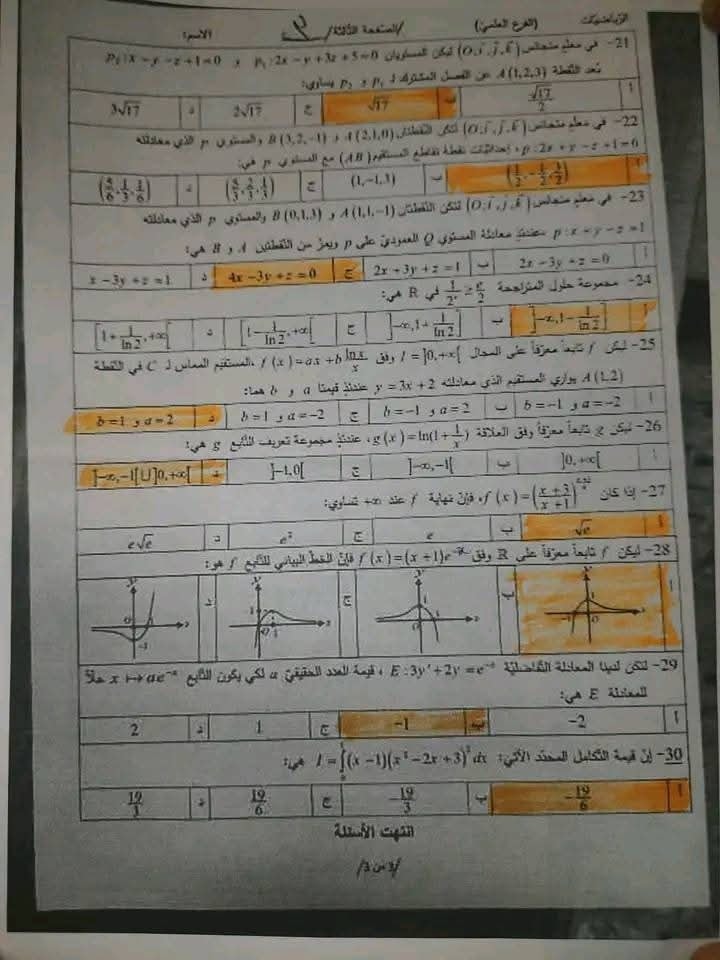 الرياضيات (الفرع العلمي) /الصفحة الثالثة/ الاسم:
21- في معلم متجانس (O;i,j,k) ليكن المستويان p₁:2x−y+3z+5=0 و p₂:x−y−z+1=0
بُعد النقطة A(1,2,3) عن الفصل المشترك لـ p₁ و p₂ يساوي:
أ √17/2 ب √17 ج 2√17 د 3√17
22- في معلم متجانس (O;i,j,k) لتكن النقطتان A(2,1,0) و B(3,2,−1) والمستوي p الذي معادلته
p:2x+y−z+1=0، إحداثيات نقطة تقاطع المستقيم (AB) مع المستوي p هي:
أ ب (1,−1,3) ج د
23- في معلم متجانس (O;i,j,k) لتكن النقطتان A(1,1,−1) و B(0,1,3) والمستوي p الذي معادلته
p:x−y−z=1 عندئذٍ معادلة المستوي Q العمودي على p ويمرّ من النقطتين A و B هي:
أ 2x−3y+z=0 ب 2x+3y+z=1 ج 4x−3y+z=0 د x−3y+z=1
24- مجموعة حلول المتراجحة 1/2ˣ ≥ e/2 في R هي:
أ ]−∞,1−1/ln2] ب ]−∞,1+1/ln2] ج [1−1/ln2,+∞[ د [1+1/ln2,+∞[
25- ليكن f تابعاً معرّفاً على المجال I=]0,+∞[ وفق f(x)=ax+b lnx/x، المستقيم المماس لـ C في النقطة
A(1,2) يوازي المستقيم الذي معادلته y=3x+2 عندئذٍ قيمتا a و b هما:
أ a=−2 و b=−1 ب a=2 و b=−1 ج a=−2 و b=1 د a=2 و b=1
26- ليكن g تابعاً معرّفاً وفق العلاقة g(x)=ln(1+1/x)، عندئذٍ مجموعة تعريف التابع g هي:
أ ]0,+∞[ ب ]−∞,−1[ ج ]−1,0[ د ]−∞,−1[∪]0,+∞[
27- إذا كان f(x)=((x+3)/(x+1))، فإنّ نهاية f عند +∞ تساوي:
أ √e ب e ج e² د e√e
28- ليكن f تابعاً معرّفاً على R وفق f(x)=(x+1)e فإنّ الخط البياني للتابع f هو:
أ ب ج د
29- لتكن لدينا المعادلة التفاضليّة E:3y'+2y=e⁻ˣ، قيمة العدد الحقيقي a لكي يكون التابع x↦ae⁻ˣ حلاً
للمعادلة E هي:
أ −2 ب −1 ج 1 د 2
30- إنّ قيمة التكامل المحدّد الآتي: I=∫₀¹(x−1)(x²−2x+3)²dx هي:
أ −19/6 ب −19/3 ج 19/6 د 19/3
انتهت الأسئلة
/3 من 3/